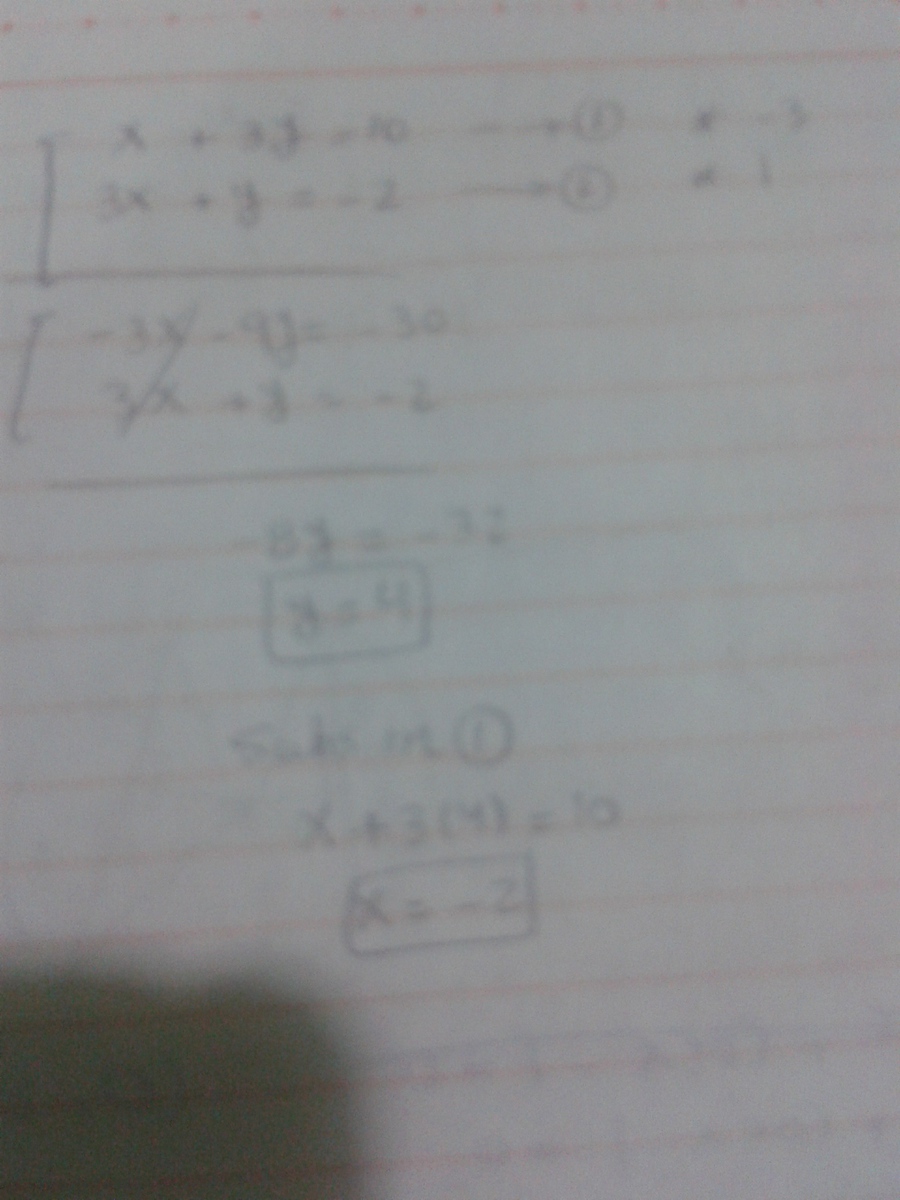 x + 3y = 10 → ① * -3
3x + y = -2 → ② * 1
-3x - 9y = -30
3x + y = -2
-8y = -32
y = 4
Subs in ①
x + 3(4) = 10
x = -2